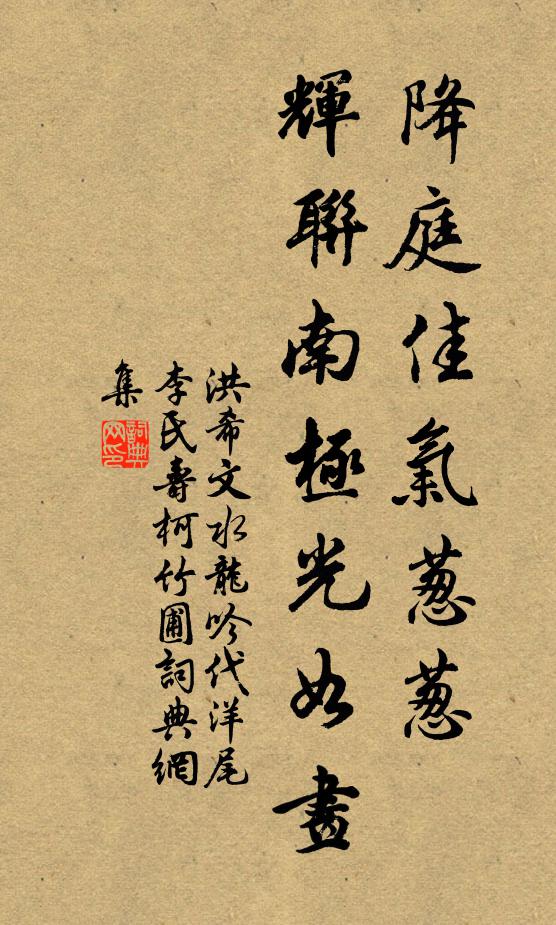 降庭佳氣葱葱
輝聯南極光如畫
洪希文水龍吟代洋尾
李氏壽柯竹圃詞典網
集
詞典
网印